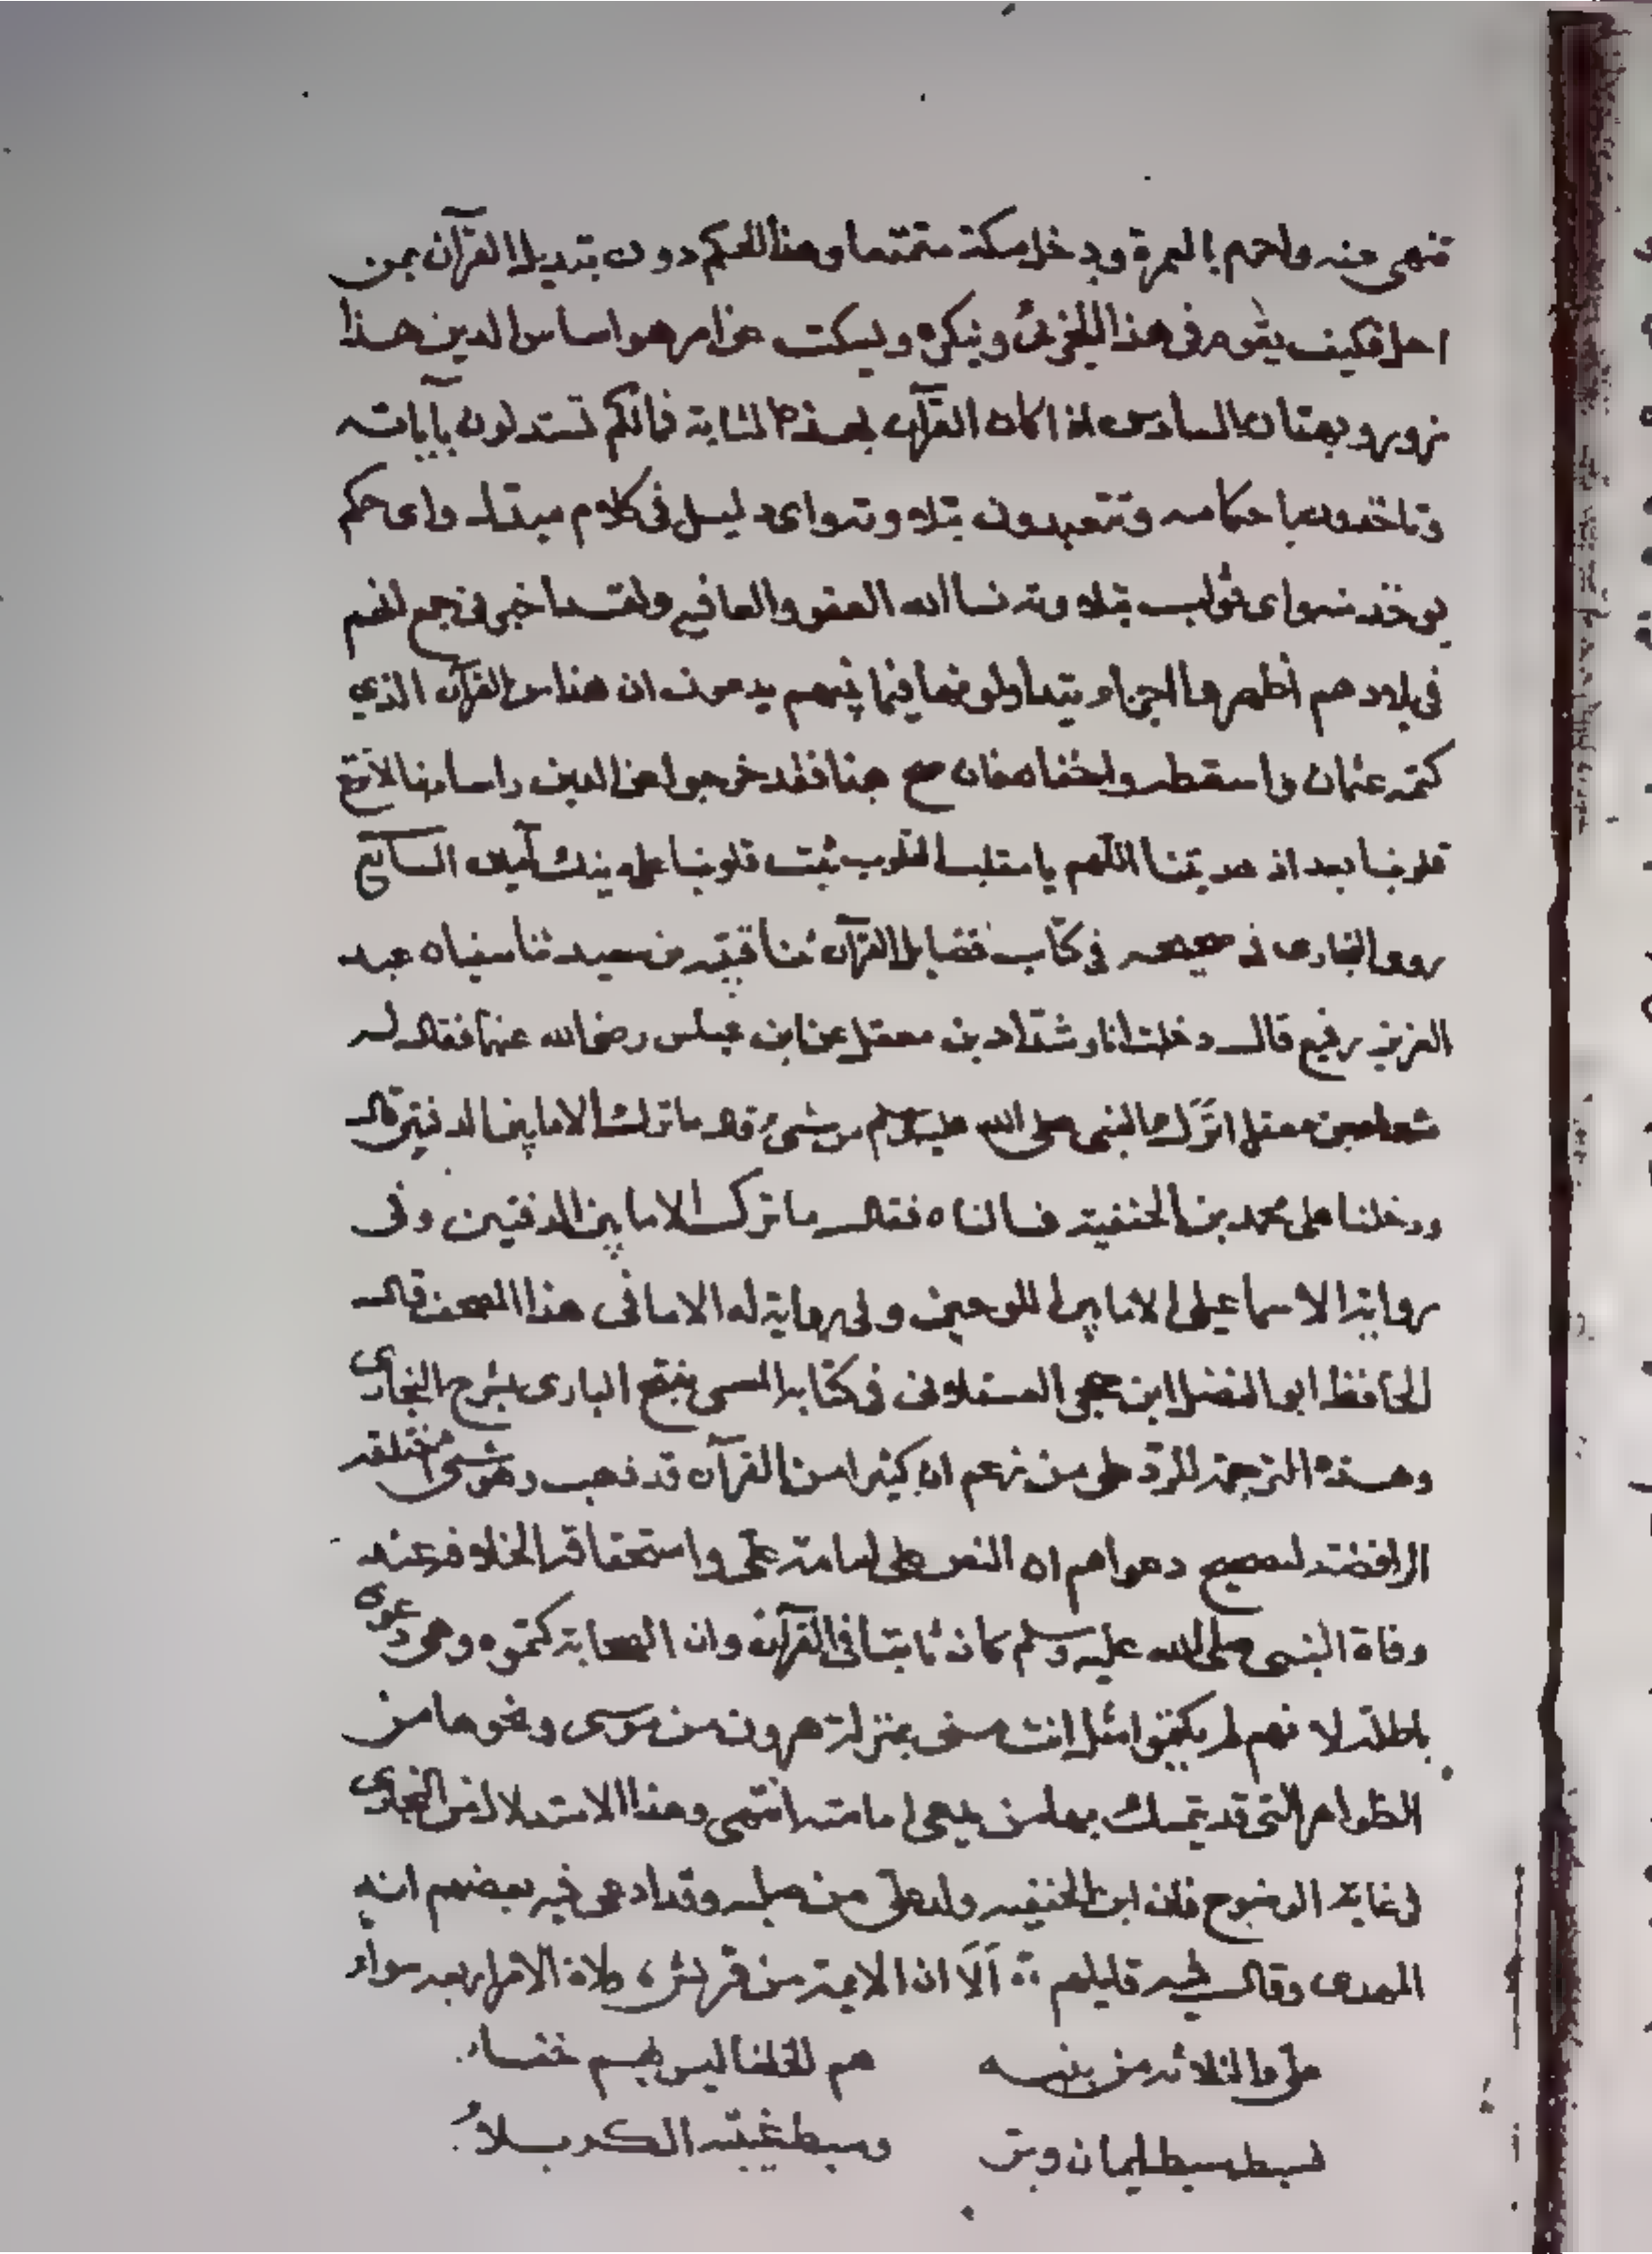 فنهى عنه واحرم بالعمرة ودخل مكة متمتعا وهذا الحكم دون تبديل القرآن بمن
احل فكيف يقوم في هذا الجزئى وينكره ويسكت عن امر هو اساس الدين هذا
زور وبهتان السادس اذا كان القرآن بهذه المثابة فمالكم تستدلون بآياته
وتاخذون باحكامه وتتعبدون بتلاوته واى دليل في كلام مبدل واى حكم
يوخذ منه واى ثواب بتلاوته نسأ الله العفو والعافيه ولقد اخبرني جمع انهم
في بلادهم أظهروا اجزاء يتداولونها فيما بينهم يدعون ان هذا من القرآن الذي
كتمه عثمان واسقطه واخفاه فان صح هذا فقد خرجوا عن الدين راسا ربنا لا تزغ
قلوبنا بعد اذ هديتنا اللهم يا مقلب القلوب ثبت قلوبنا على دينك آمين السابع
روى البخارى في صحيحه في كتاب فضايل القرآن ثنا قتيبه بن سعيد ثنا سفيان عبد
العزيز رفيع قال دخلت انا وشداد بن معقل عن ابن عباس رضى الله عنهما فقال له
شداد بن معقل اترك النبى صلى الله عليه وسلم من شئ قال ما ترك الا ما بين الدفتين قال
ودخلنا على محمد بن الحنفية فسالناه فقال ما ترك الا ما بين الدفتين وفى
رواية الاسماعيلى الا ما بين اللوحين وفى رواية له الا ما فى هذا المصحف قال
الحافظ ابو الفضل ابن حجر العسقلانى في كتابه المسمى بفتح البارى بشرح البخارى
وهذه الترجمة للرد على من زعم ان كثيرا من القرآن قد ذهب وهو شئ اختلقه
الرافضة لتصحيح دعواهم ان النص على امامة على واستحقاقه الخلافة عند
وفاة النبى صلى الله عليه وسلم كان ثابتا فى القرآن وان الصحابة كتموه وهى دعوى
باطلة لانهم لم يكتموا مثل انت منى بمنزلة هرون من موسى ونحوها من
الظواهر التى قد يتمسك بها من يدعى امامته انتهى وهذا الاستدلال من البخارى
فى غاية الوضوح فان ابن الحنفيه ولد على من صلبه وقد ادعى فيه بعضهم انه
المهدى وقال فيه قايلهم ألا ان الايمة من قريش ولاة الامر اربعه سواء
على والثلاثه من بنيه هم الخلفا ليس بهم خفاء
فسبط سبط ايمان وبر وسبط غيبته الكربلاء